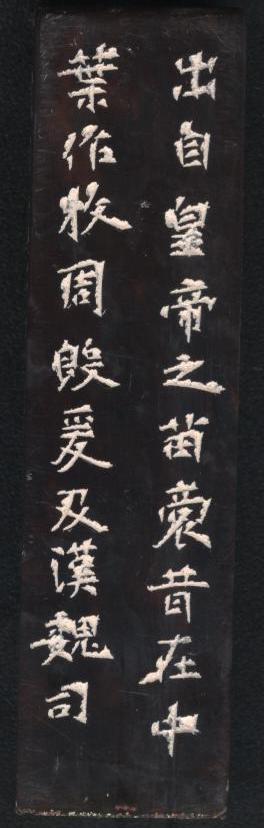 出自皇帝之苗裔昔在中
葉作牧周殷爰及漢魏司